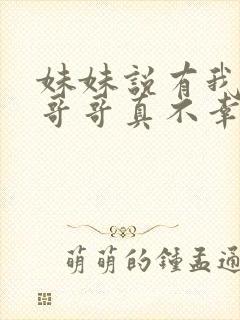 妹妹說有我
哥哥真不幸
萌萌的鍾孟通